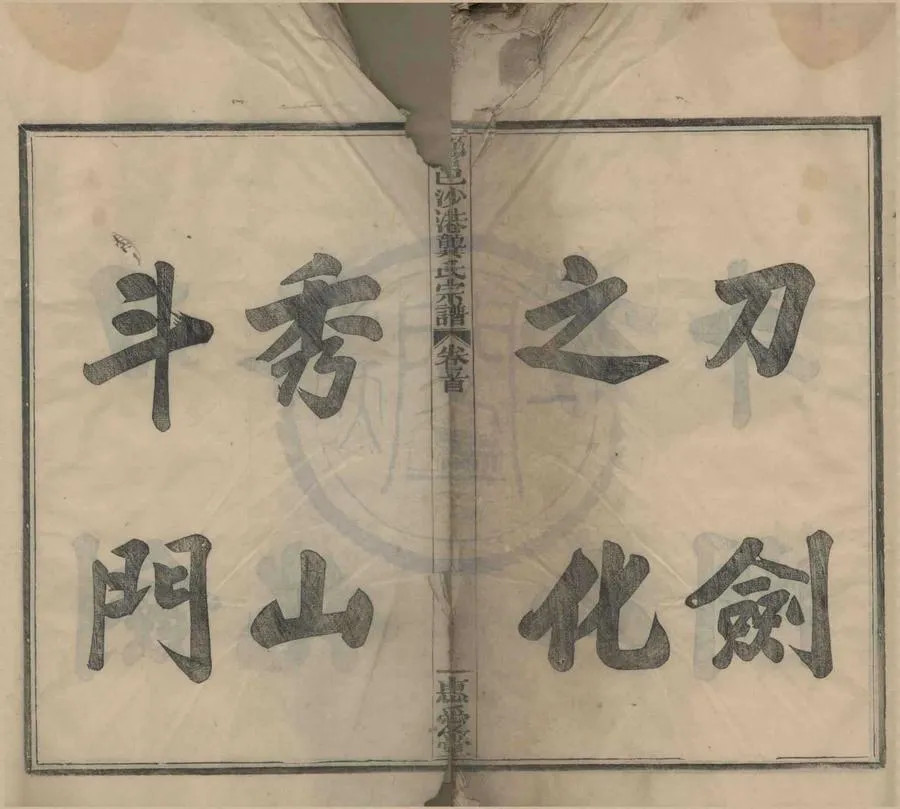 刀劍
之化
邑沙港龔氏宗譜
卷首
惠愛堂
秀山
斗門